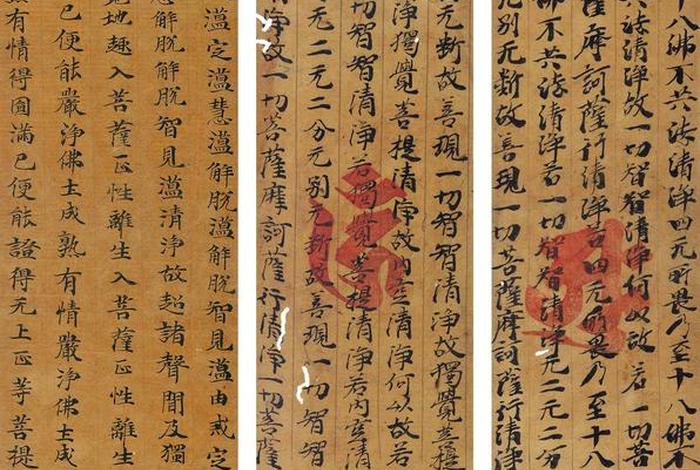 十八佛不共法清淨四无所畏乃至十八佛不
共法清淨故一切智智清淨何以故若一切菩
薩摩訶薩行清淨若四无所畏乃至十八
佛不共法清淨若一切智智清淨无二无二分
无別无斷故善現一切菩薩摩訶薩行清淨
无斷故善現一切智智清淨故獨覺菩提
淨獨覺菩提清淨故內空清淨何以故若
切智智清淨若獨覺菩提清淨若內空清
无二无二分无別无斷故善現一切智智
淨故一切菩薩摩訶薩行清淨一切菩薩
蘊定蘊慧蘊解脫蘊解脫智見蘊由戒定
慧解脫解脫智見蘊清淨故超諸聲聞及獨
覺地趣入菩薩正性離生入菩薩正性離生
已便能嚴淨佛土成熟有情嚴淨佛土成
熟有情得圓滿已便能證得无上正等菩提